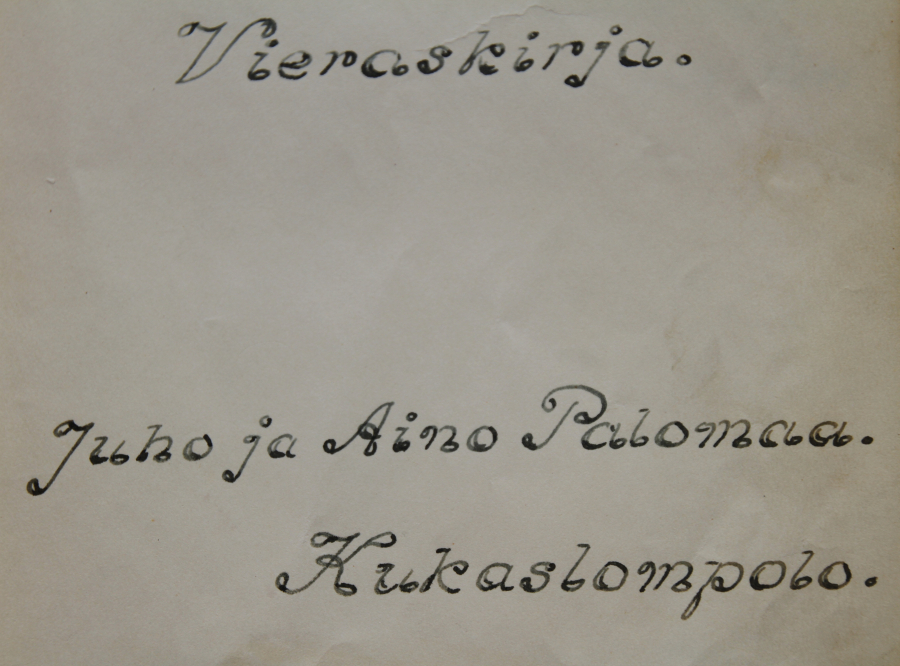 Vieraskirja.
Juho ja Aino Palomaa.
Kukaslompolo.